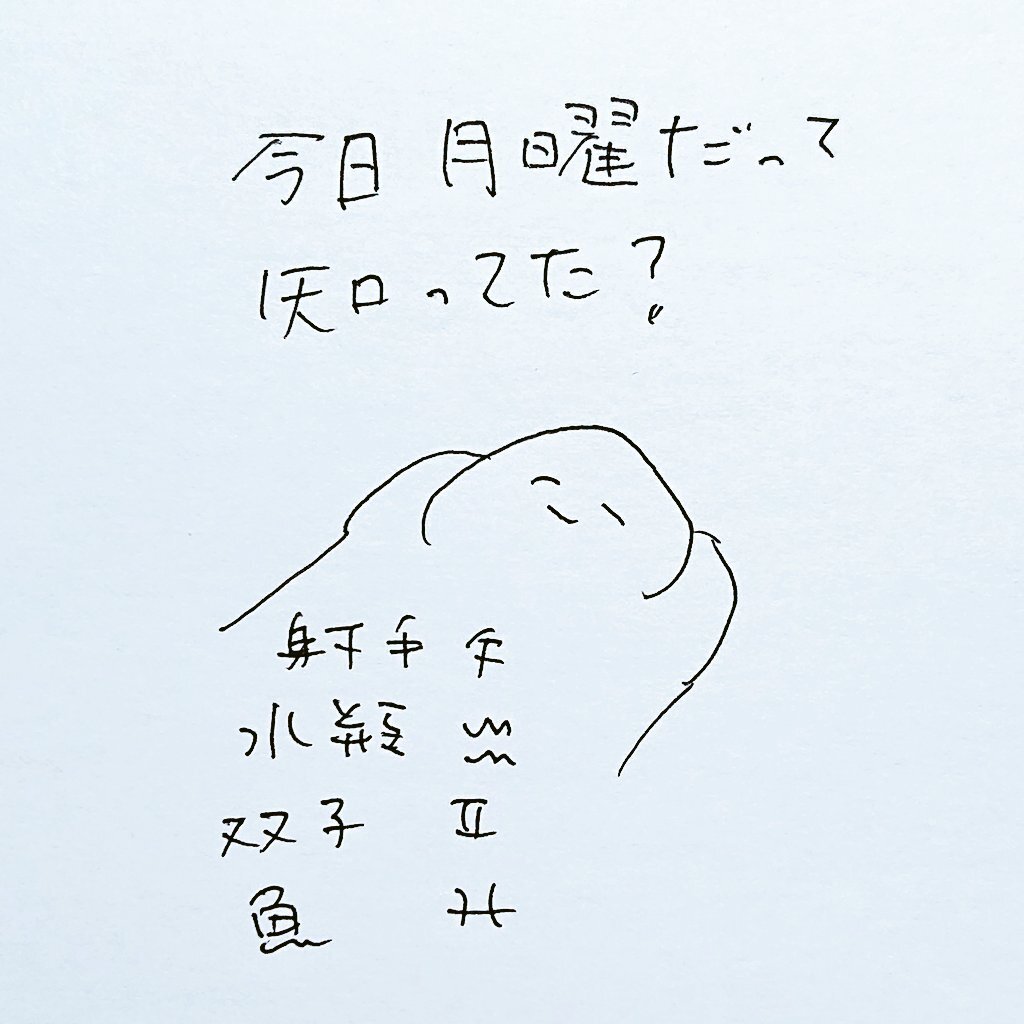 今日月曜だって
知ってた?
射手 ♐
水瓶 ♒
双子 Ⅱ
魚 ♓